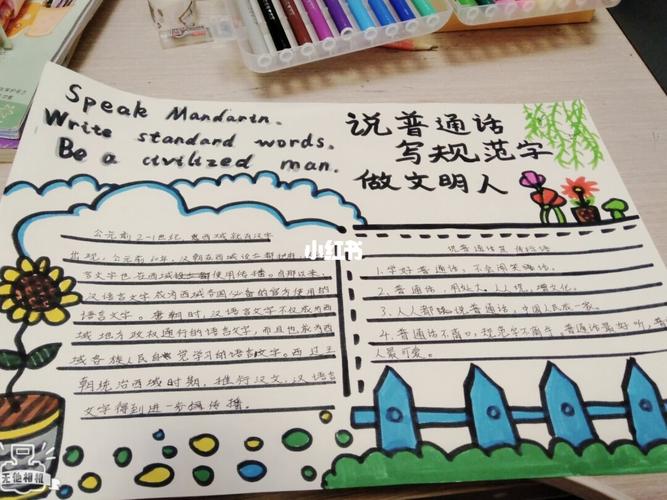 Speak Mandarin.
Write standard words.
Be a civilized man.
说普通话
写规范字
做文明人
公元前2-1世纪,
出现,公元前60年,汉朝在西域设立都护府
言文字也在西域使用传播。自那以来,
汉语言文字成为西域各国必备的官方使用的
语言文字。唐朝时,汉语言文字不仅成为西
域地方政权通行的语言文字,而且也成为西
域各族人民自觉学习的语言文字。西辽王
朝统治西域时期,推行汉文,汉语言
文字得到进一步传播。
说普通话宣传标语
1.学好普通话,不会闹笑话。
2.普通话,用处大。人人说,增文化。
3.人人都说普通话,中国人民成一家。
4.普通话不离口,规范字不离手,普通话最好听,
人最可爱。
小红书
无他相机